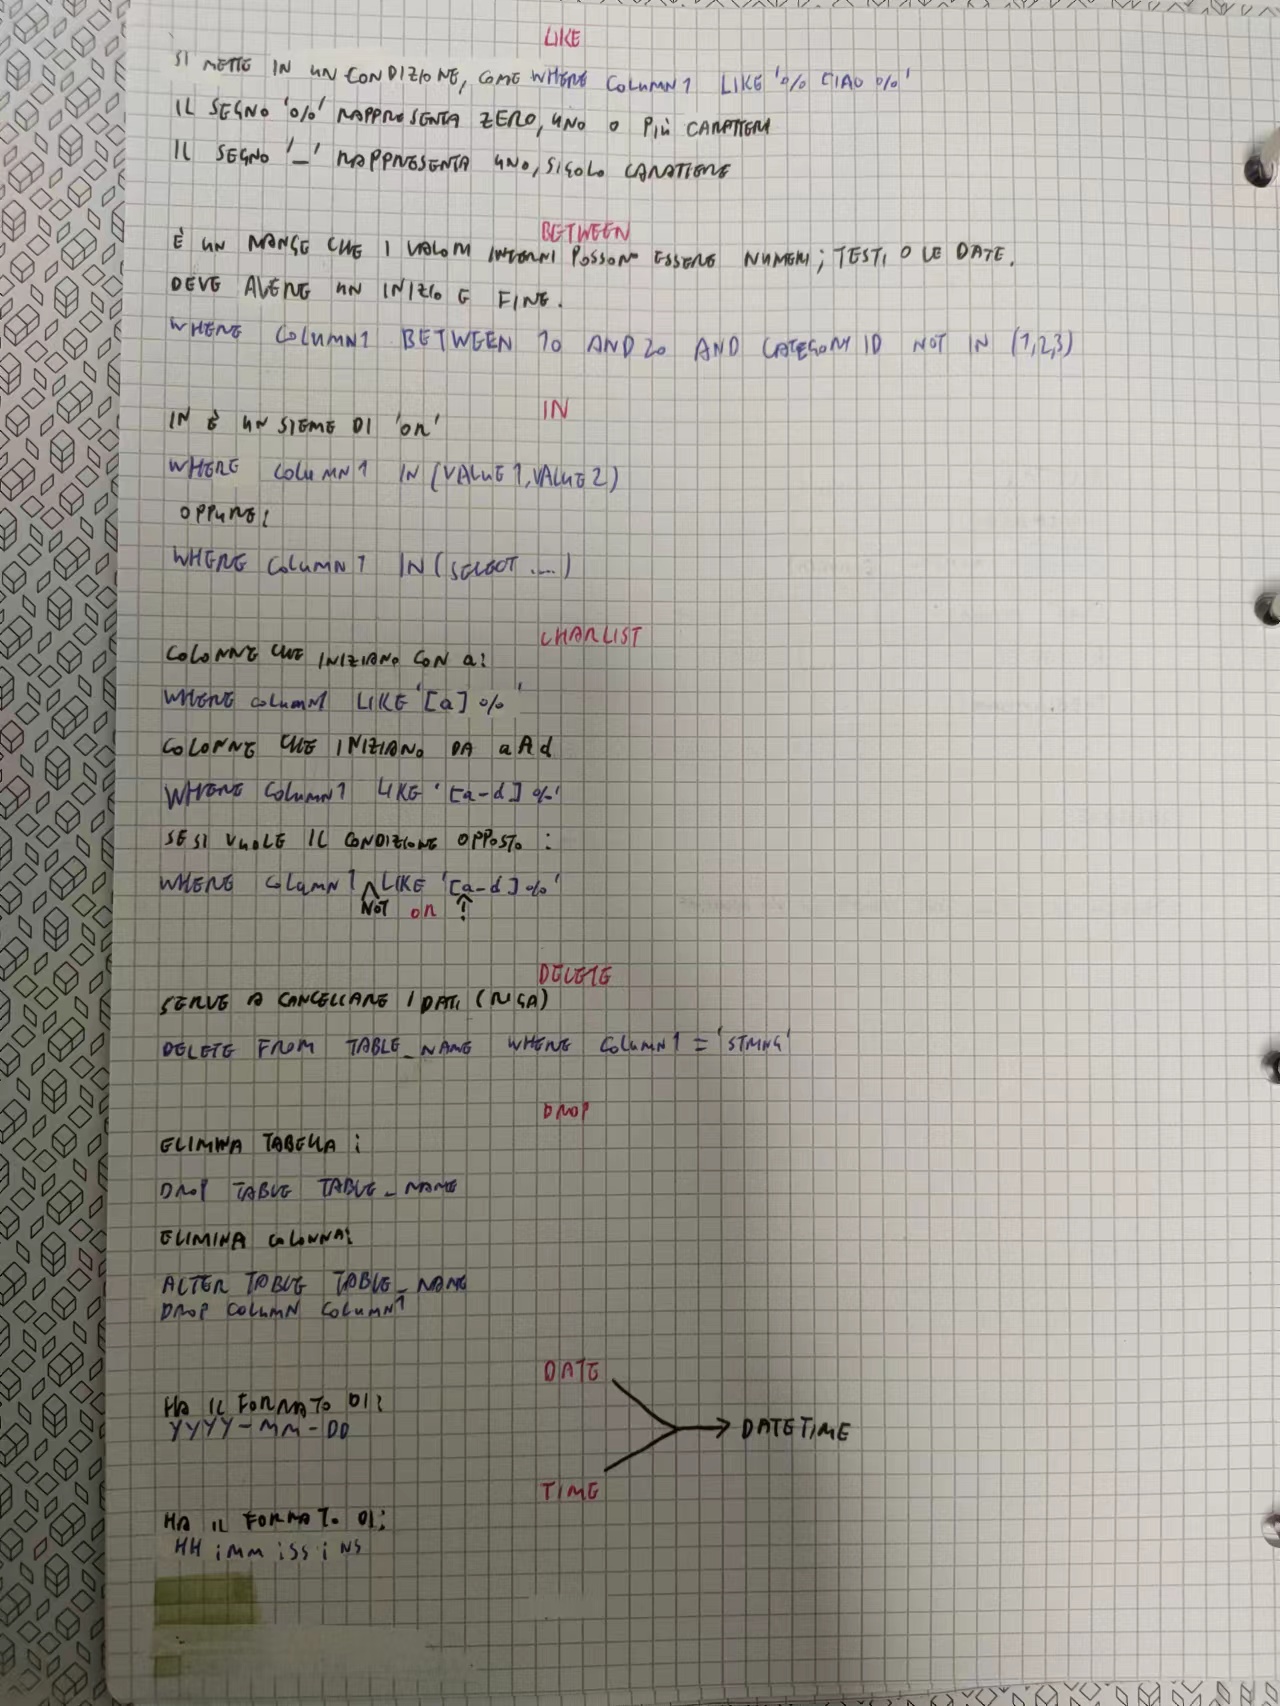 LIKE
SI METTE IN UN CONDIZIONE, COME WHERE COLUMN1 LIKE '% CIAO %'
IL SEGNO '%' RAPPRESENTA ZERO, UNO O PIÙ CARATTERI
IL SEGNO '_' RAPPRESENTA UNO, SIGOLO CARATTERE
BETWEEN
È UN RANGE CHE I VALORI INTERNI POSSONO ESSERE NUMERI; TESTI O LE DATE.
DEVE AVERE UN INIZIO E FINE.
WHERE COLUMN1 BETWEEN 10 AND 20 AND CATEGORY ID NOT IN (1,2,3)
IN
IN È UN SIEME DI 'OR'
WHERE COLUMN1 IN (VALUE1, VALUE2)
OPPURE:
WHERE COLUMN1 IN (SELECT ....)
CHARLIST
COLONNE CHE INIZIANO CON a:
WHERE COLUMN1 LIKE '[a] %'
COLONNE CHE INIZIANO DA a A d
WHERE COLUMN1 LIKE '[a-d] %'
SE SI VUOLE IL CONDIZIONE OPPOSTO :
WHERE COLUMN1 LIKE '[a-d] %'
NOT OR !
DELETE
SERVE A CANCELLARE I DATI (RIGA)
DELETE FROM TABLE_NAME WHERE COLUMN1 = 'STRING'
DROP
ELIMINA TABELLA :
DROP TABLE TABLE_NAME
ELIMINA COLONNA:
ALTER TABLE TABLE_NAME
DROP COLUMN COLUMN1
DATE
HA IL FORMATO DI:
YYYY-MM-DD
DATETIME
TIME
HA IL FORMATO DI:
HH:MM:SS:NS